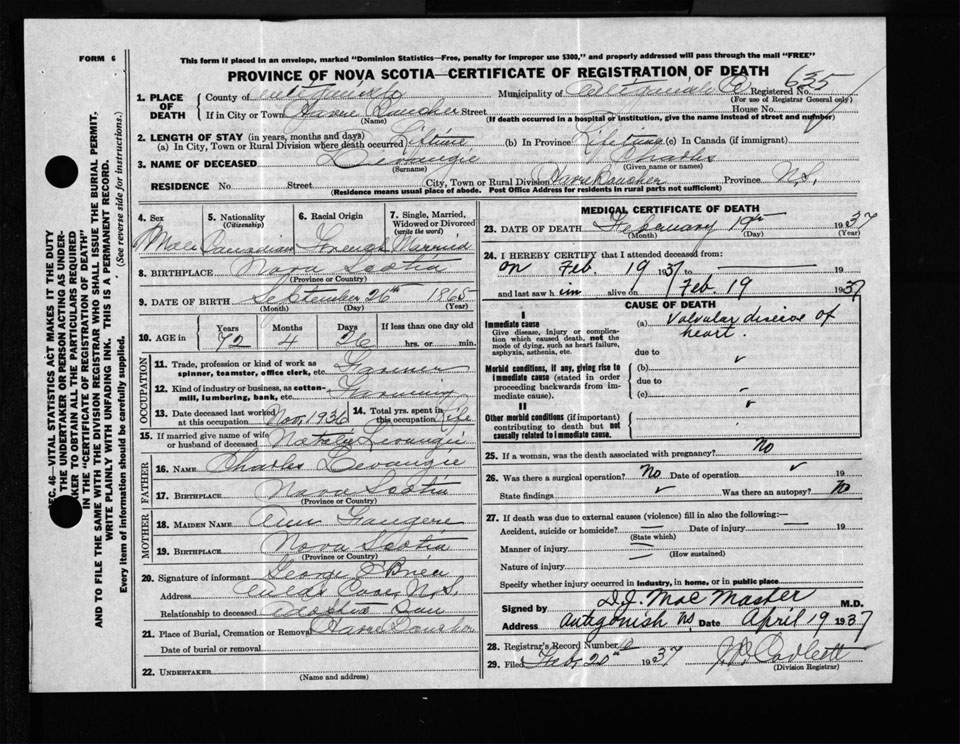 FORM 6
This form if placed in an envelope, marked "Dominion Statistics—Free, penalty for improper use $300," and properly addressed will pass through the mail "FREE"
PROVINCE OF NOVA SCOTIA—CERTIFICATE OF REGISTRATION OF DEATH
635
Registered No.
(For use of Registrar General only)
1. PLACE OF DEATH
County of Municipality of
If in City or Town Havre Boucher Street House No.
(Name) (If death occurred in a hospital or institution, give the name instead of street and number)
2. LENGTH OF STAY (in years, months and days)
(a) In City, Town or Rural Division where death occurred Lifetime (b) In Province Lifetime (c) In Canada (if immigrant)
3. NAME OF DECEASED Levangie Charles
(Surname) (Given name or names)
RESIDENCE No. Street City, Town or Rural Division Havre Boucher Province N.S.
(Residence means usual place of abode. Post Office Address for residents in rural parts not sufficient)
4. Sex Male
5. Nationality (Citizenship) Canadian
6. Racial Origin French
7. Single, Married, Widowed or Divorced (write the word) Married
8. BIRTHPLACE Nova Scotia
(Province or Country)
9. DATE OF BIRTH September 26th 1865
(Month) (Day) (Year)
10. AGE in Years 72 Months 4 Days 26 If less than one day old hrs. or min.
OCCUPATION
11. Trade, profession or kind of work as spinner, teamster, office clerk, etc. Farmer
12. Kind of industry or business, as cotton-mill, lumbering, bank, etc. Farming
13. Date deceased last worked at this occupation Nov. 1936
14. Total yrs. spent in this occupation Life
15. If married give name of wife or husband of deceased Levangie
FATHER
16. NAME Charles Levangie
17. BIRTHPLACE Nova Scotia
(Province or Country)
MOTHER
18. MAIDEN NAME Ann
19. BIRTHPLACE Nova Scotia
(Province or Country)
20. Signature of informant George O'Brien
Address N.S.
Relationship to deceased Adopted Son
21. Place of Burial, Cremation or Removal Havre Boucher
Date of burial or removal
22. UNDERTAKER
(Name and address)
MEDICAL CERTIFICATE OF DEATH
23. DATE OF DEATH February 19th 1937
(Month) (Day) (Year)
24. I HEREBY CERTIFY that I attended deceased from:
on Feb. 19 1937 to 19
and last saw him alive on Feb. 19 1937
CAUSE OF DEATH
I
Immediate cause
Give disease, injury or complication which caused death, not the mode of dying, such as heart failure, asphyxia, asthenia, etc.
(a) Valvular disease of heart.
due to
Morbid conditions, if any, giving rise to immediate cause (stated in order proceeding backwards from immediate cause).
(b)
due to
(c)
II
Other morbid conditions (if important) contributing to death but not causally related to immediate cause.
25. If a woman, was the death associated with pregnancy? No
26. Was there a surgical operation? No Date of operation 19
State findings Was there an autopsy? No
27. If death was due to external causes (violence) fill in also the following:—
Accident, suicide or homicide? Date of injury 19
(State which)
Manner of injury
(How sustained)
Nature of injury
Specify whether injury occurred in industry, in home, or in public place
Signed by D.J. MacMaster M.D.
Address Antigonish NS Date April 19 1937
28. Registrar's Record Number
29. Filed Feb. 20th 1937
(Division Registrar)
SEC. 46—VITAL STATISTICS ACT MAKES IT THE DUTY
OF THE UNDERTAKER OR PERSON ACTING AS UNDER-
TAKER TO OBTAIN ALL THE PARTICULARS REQUIRED
IN THE "CERTIFICATE OF REGISTRATION OF DEATH"
AND TO FILE THE SAME WITH THE DIVISION REGISTRAR WHO SHALL ISSUE THE BURIAL PERMIT.
WRITE PLAINLY WITH UNFADING INK. THIS IS A PERMANENT RECORD.
Every item of information should be carefully supplied. (See reverse side for instructions.)